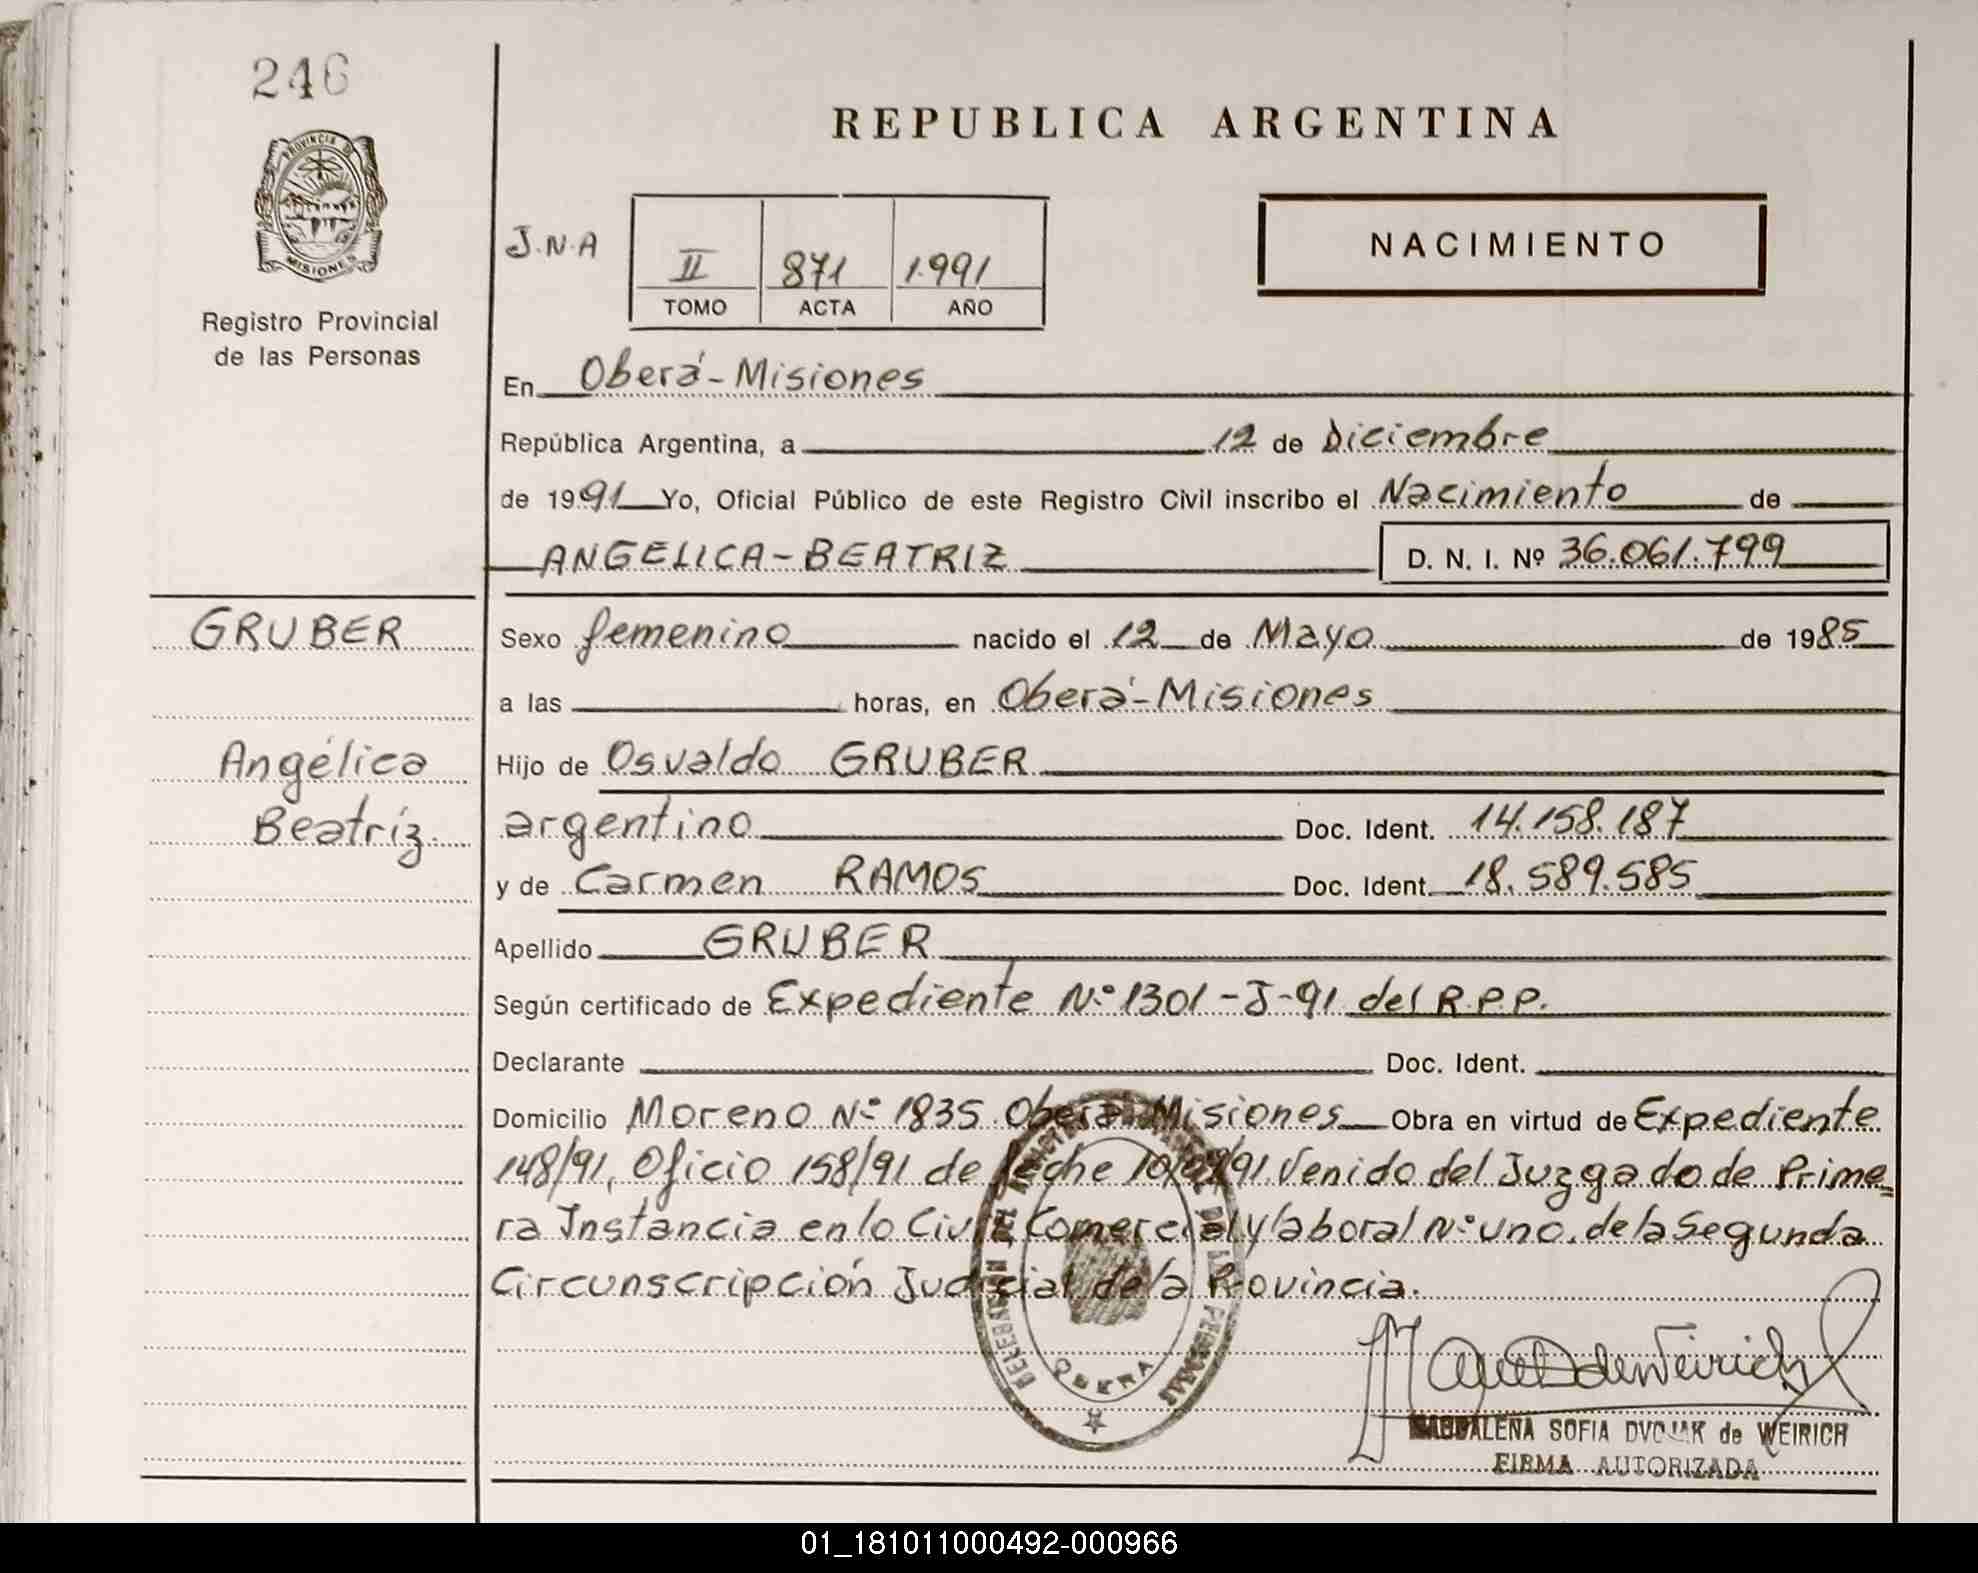 246
REPUBLICA ARGENTINA
PROVINCIA DE
MISIONES
Registro Provincial
de las Personas
J.N.A
II 871 1.991
TOMO ACTA AÑO
NACIMIENTO
En Oberá - Misiones
República Argentina, a 12 de Diciembre
de 1991 Yo, Oficial Público de este Registro Civil inscribo el Nacimiento de
ANGELICA - BEATRIZ D. N. I. Nº 36.061.799
GRUBER
Sexo femenino nacido el 12 de Mayo de 1985
a las horas, en Oberá - Misiones
Angélica
Beatríz.
Hijo de Osvaldo GRUBER
argentino Doc. Ident. 14.158.187
y de Carmen RAMOS Doc. Ident. 18.589.585
Apellido GRUBER
Según certificado de Expediente Nº 1301-J-91 del R.P.P.
Declarante Doc. Ident.
Domicilio Moreno Nº 1835 Oberá Misiones Obra en virtud de Expediente
148/91, Oficio 158/91 de feche Venido del Juzgado de Prime=
ra Instancia en lo Civil, Comercial y laboral Nº uno. de la Segunda
Circunscripción Judicial de la Provincia.
OBERA
MAGDALENA SOFIA de WEIRICH
FIRMA AUTORIZADA
01_181011000492-000966